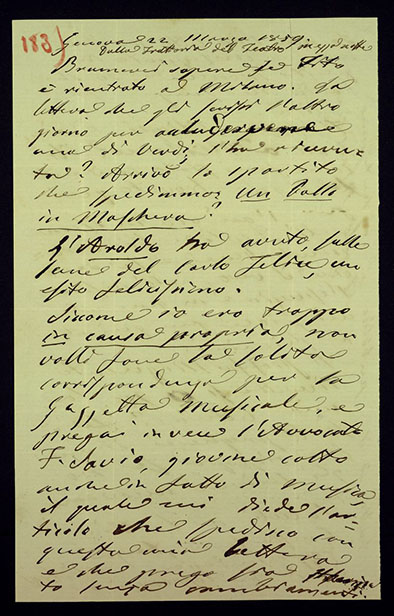 183)
Genova 22 Marzo 1859.
Dalla Trattoria del Teatro mezzanotte
Bramerei sapere se Tito
è rientrato a Milano. La
lettera che gli scrissi l'altro
giorno per
una di Verdi, l'ha ricevu-
ta? Arrivò lo spartito
che spedimmo Un Ballo
in Maschera?
L'Aroldo ha avuto, sulle
scene del Carlo Felice, un
esito felicissimo.
Siccome io ero troppo
in causa propria, non
volli fare la solita
corrispondenza per la
Gazzetta Musicale, e
pregai invece l'Avvocato
F. Savio, giovine colto
anche in fatto di musica,
il quale mi diede l'ar-
ticolo che spedisco con
questa mia lettera
e che prego sia stampa-
to senza cambiamenti.